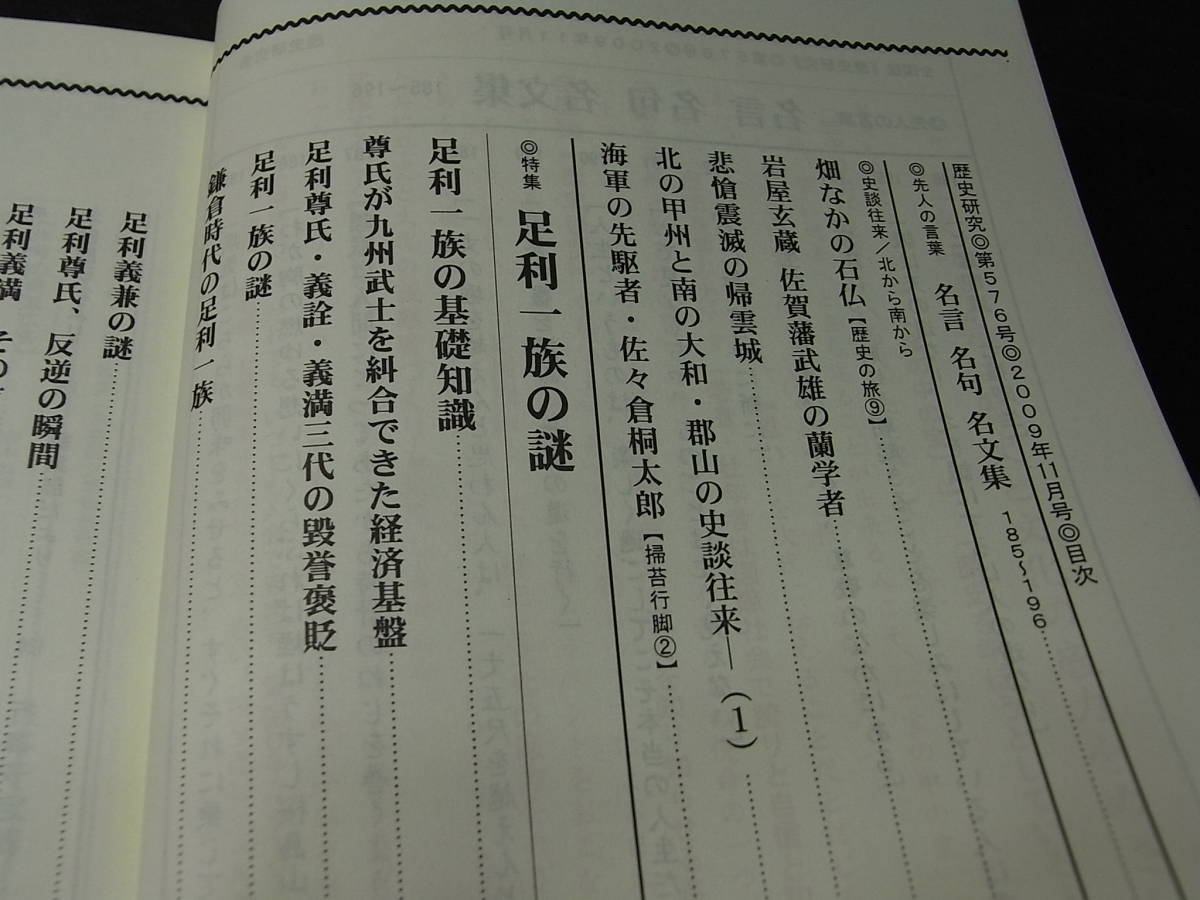 歴史研究◎第576号◎2009年11月号◎目次
◎先人の言葉 名言 名句 名文集 185〜196
◎史談往来／北から南から
畑なかの石仏【歴史の旅⑨】
岩屋玄蔵 佐賀藩武雄の蘭学者
悲愴震滅の帰雲城
北の甲州と南の大和・郡山の史談往来―(1)
海軍の先駆者・佐々倉桐太郎【掃苔行脚②】
◎特集 足利一族の謎
足利一族の基礎知識
尊氏が九州武士を糾合できた経済基盤
足利尊氏・義詮・義満三代の毀誉褒貶
足利一族の謎
鎌倉時代の足利一族
足利義兼の謎
足利尊氏、反逆の瞬間
足利義満 その